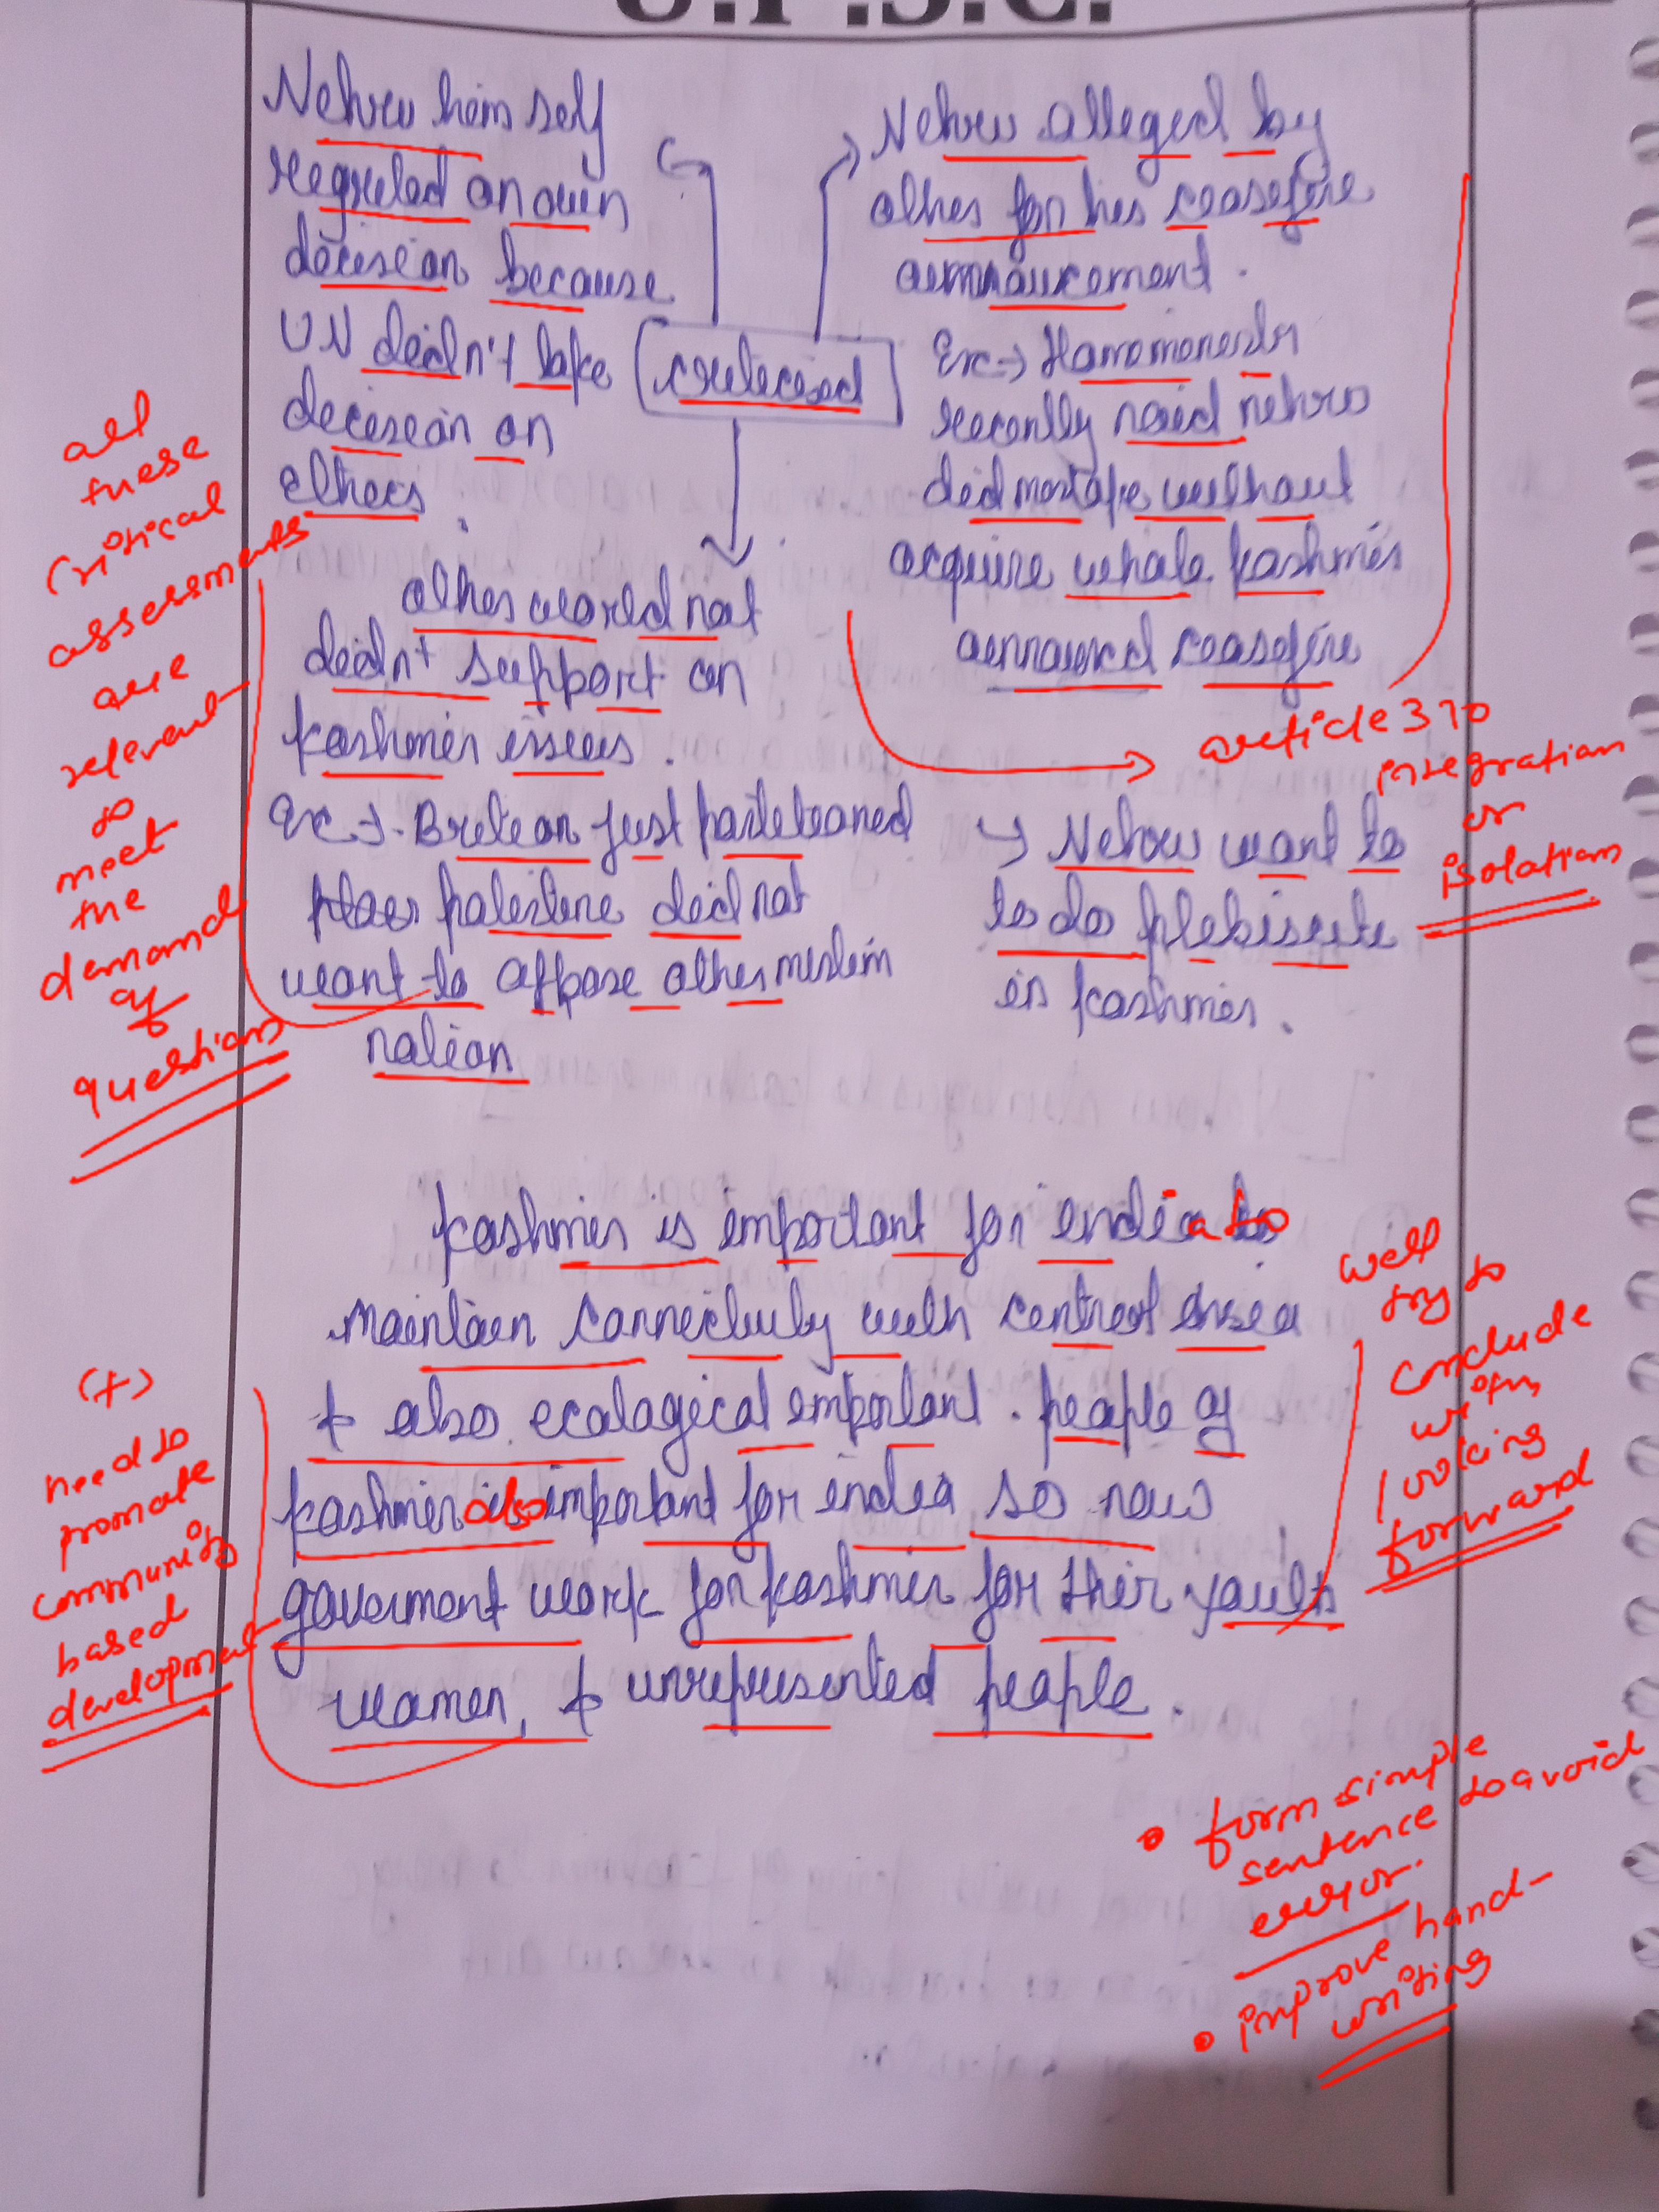 U.P.S.C.
Nehru him self
regreted on own
decision because
UN didn't take
decision on
others.
criticised
Nehru alleged by
other for his ceasefire
announcement.
Ex→ Homeminister
recently said nehru
did mistake without
acquire whole kashmir
announcd ceasefire
→ Nehru want to
to do plebiscite
in kashmir.
other world not
didnt support on
kashmir issues.
Ex→ Britean just
palestine did not
want to oppose other muslim
nation
all
these
critical
assessments
are
relevant
to
meet
the
demand
of
question
article 370
integration
or
isolation
kashmir is important for india to
maintain connectivity with central asia
& also ecological important. people of
kashmir also important for india so now
goverment work for kashmir for thir youth
women, & unrepresented people.
(+)
need to
promote
community
based
development
well
try to
conclude
with
looking
forward
• form simple
sentence to avoid
error.
• improve hand-
writing